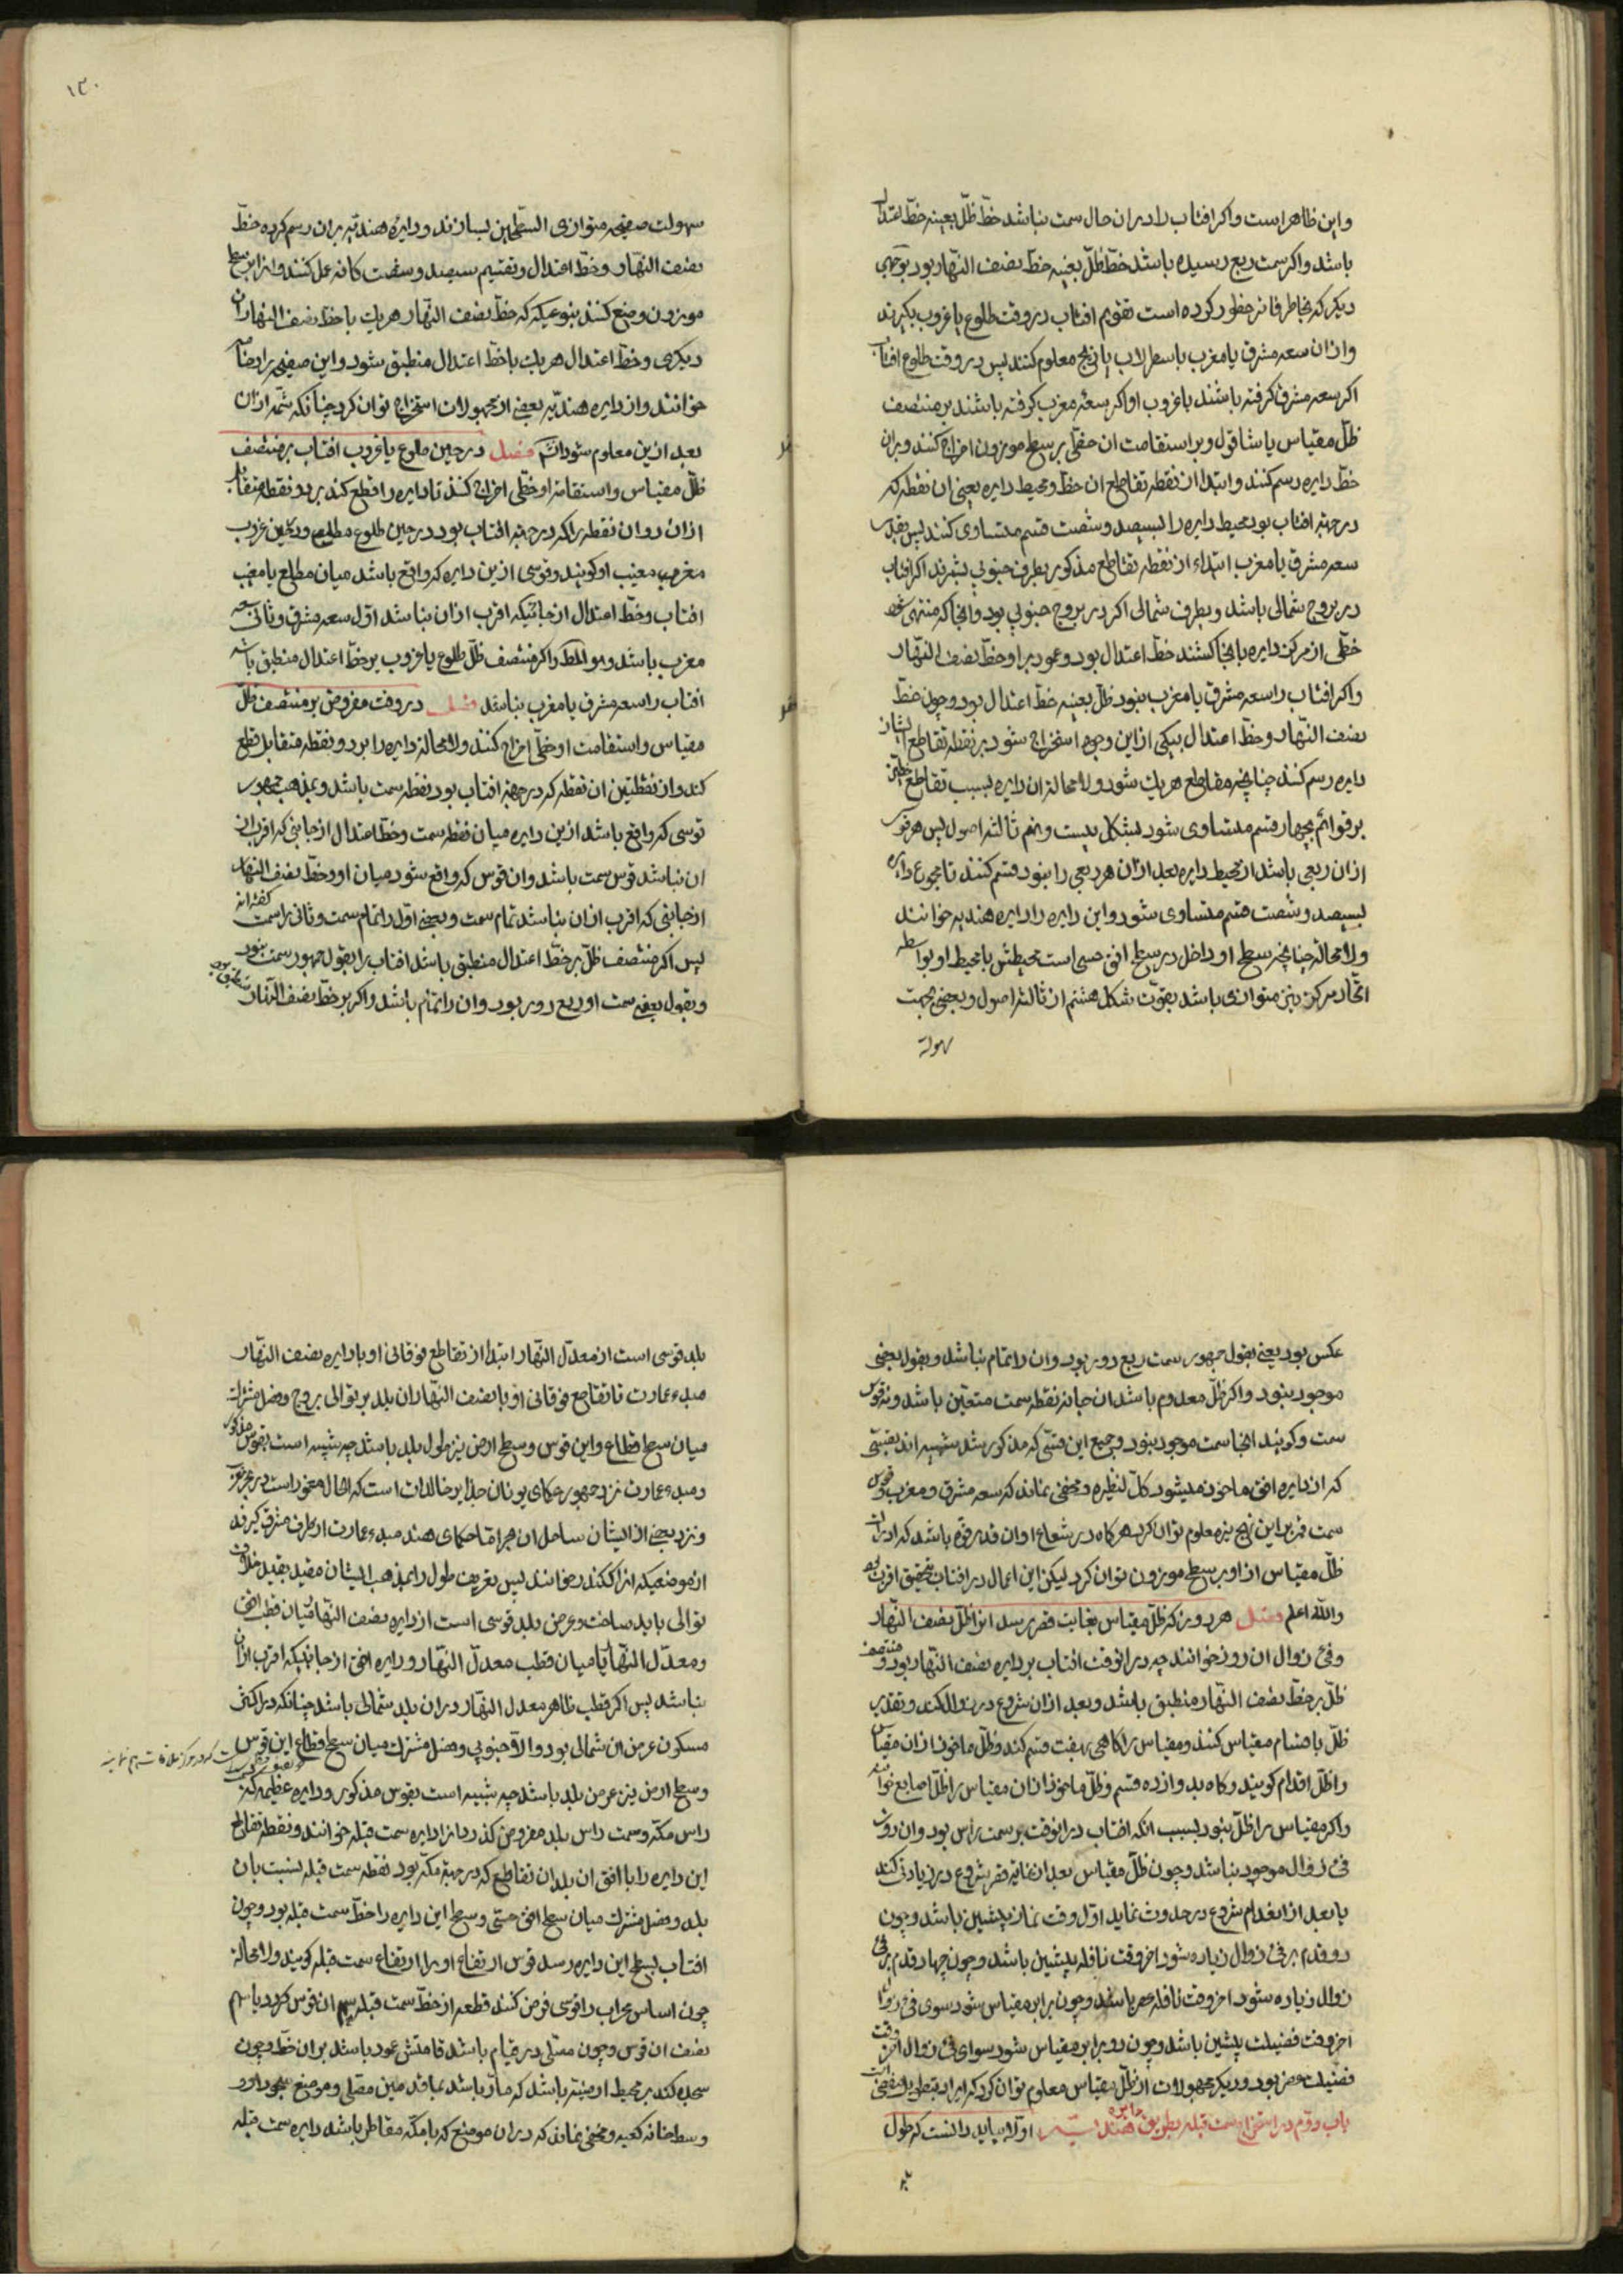 واین ظاهر است واکر افتاب را در ان حال سمت نباشد خطّ ظلّ بعینه خطّ اعتدال
باشد واکر سمت ربع رسیده باشد خطّ ظلّ بعینه خطّ نصف النهار بود بوجهی
دیکر که بخاطر فاتر خطور کرده است تقویم افتاب در وقت طلوع یا غروب بکیرند
وازان سعه مشرق یا مغرب باسطرلاب یا زیج معلوم کنند پس در وقت طلوع افتاب
اکر سعه مشرق کرفته باشند یا غروب او اکر سعه مغرب کرفته باشند بر منتصف
ظلّ مقیاس یا شاقول وبر استقامت ان خطّی بر سطح موزون اخراج کنند وبران
خطّ دایره رسم کنند وابتدا از نقطه تقاطع ان خطّ ومحیط دایره یعنی ان نقطه که
در جهة افتاب بود محیط دایره را بسیصد وشصت قسم متساوی کنند پس بقدر
سعه مشرق یا مغرب ابتداء از نقطه تقاطع مذکور بطرف جنوبی بشمرند اکر افتاب
در بروج شمالی باشد وبطرف شمالی اکر در بروج جنوبی بود وانجا که منتهی شود
خطّی از مرکز دایره بانجا کشند خطّ اعتدال بود وعود بر او خطّ نصف النّهار
واکر افتاب را سعه مشرق یا مغرب نبود ظلّ بعینه خطّ اعتدال بود وچون خطّ
نصف النّهار وخطّ اعتدال بیکی از این وجوه استخراج شود بر نقطه تقاطع ایشان
دایره رسم کنند چنانچه مقاطع هر یک شود ولا محالة ان دایره بسبب تقاطع خطّین
بر قوائم بچهار قسم متساوی شود بشکل بیست ونهم ثالثه اصول پس هر قوس
ازان ربعی باشد از محیط دایره بعد ازان هر ربعی را بنود قسم کنند تا مجموع دایره
بسیصد وشصت قسم متساوی شود واین دایره را دایره هندیه خوانند
ولا محالة چنانچه سطح او داخل در سطح افق حسی است محیطش با محیط او بواسطه
اتّحاد مرکز نیز متوازی باشد بقوّت شکل هشتم از ثالثه اصول وبعضی بجهت
سهولة
۱۳۰
سهولت صفیحه متوازی السّطحین بسازند ودایره هندیّه بران رسم کرده خطّ
نصف النّهار وخطّ اعتدال وتقسیم سیصد وشصت کانه عمل کنند وانرا بر سطح
موزون وضع کنند بنوعیکه خطّ نصف النّهار هر یک با خطّ نصف النهار ان
دیکری وخطّ اعتدال هر یک با خطّ اعتدال منطبق شود واین صفیحه را رضا
خوانند واز دایره هندیّه بعضی از مجهولات استخراج توان کرد چنانکه شمّه ازان
بعد ازین معلوم شود فصل در حین طلوع یا غروب افتاب بر منتصف
ظلّ مقیاس واستقامة او خطّی اخراج کنند تا دایره را قطع کند بر دو نقطه متقابل
ازان دو ان نقطه را که در جهة افتاب بود در حین طلوع مطلع ودر حین غروب
مغرب مغیب او کویند وقوسی ازین دایره که واقع باشد میان مطلع یا مغیب
افتاب وخطّ اعتدال از جانبیکه اقرب ازان نباشد اوّل سعه مشرق وثانی سعه
مغرب باشد وهو المطلوب واکر منتصف ظلّ طلوع یا غروب بر خطّ اعتدال منطبق باشد
افتاب را سعه مشرق یا مغرب نباشد فصل در وقت مفروض بر منتصف ظلّ
مقیاس واستقامت او خطّی اخراج کنند ولا محالة دایره را بر دو نقطه متقابل قطع
کند واز نقطتین ان نقطه که در جهة افتاب بود نقطه سمت باشد وبمذهب جمهور
قوسی که واقع باشد ازین دایره میان نقطه سمت وخطّ اعتدال از جانبی که اقرب از
ان نباشد قوس سمت باشد وان قوس که واقع شود میان او وخطّ نصف النهار
از جانبی که اقرب ازان نباشد تمام سمت وبعضی اوّل را تمام سمت وثانی را سمت کفته‌اند
پس اکر منتصف ظلّ بر خطّ اعتدال منطبق باشد افتاب را بقول جمهور سمت نبود
وبقول بعضی سمت او ربع دور بود وان را تمام باشد واکر بر خطّ نصف النّهار منطبق بود
عکس بود یعنی بقول جمهور سمت ربع دور بود وان را تمام نباشد وبقول بعضی
موجود نبود واکر ظلّ معدوم باشد ان جا نه نقطه سمت متعیّن باشد ونه قوس
سمت وکویند انجا سمت موجود نبود وجمیع این قسّی که مذکور شد شبیه اند بقسیّ
که از دایره افق ماخوذ میشود کلّ لنظیره ومخفی نماند که سعه مشرق ومغرب وقوس
سمت قمر برین نهج نیز معلوم توان کرد هرکاه در شعاع او ان قدر قوّه باشد که ادراک
ظلّ مقیاس از او بر سطح موزون توان کرد لیکن این اعمال در افتاب بتحقیق اقرب بود
والله اعلم فصل هر روز که ظلّ مقیاس بغایت قصر رسد انرا ظلّ نصف النّهار
وفئ زوال ان روز خوانند چه در انوقت افتاب بر دایره نصف النّهار بود ومنتصف
ظلّ بر خطّ نصف النّهار منطبق باشد وبعد ازان شروع در زوال کند وتقدیر
ظلّ باقسام مقیاس کنند ومقیاس را کاهی بهفت قسم کنند وظلّ ماخوذ ازان مقیاس
را ظلّ اقدام کویند وکاه بدوازده قسم وظلّ ماخوذ ازان مقیاس را ظلّ اصابع خوانند
واکر مقیاس را ظلّ نبود بسبب انکه افتاب در انوقت بر سمت رأس بود وان روز
فئ زوال موجود نباشد وچون ظلّ مقیاس بعد از غایة قصر شروع در زیادتی کند
یا بعد از انعدام شروع در حدوث نماید اوّل وقت نماز پیشین باشد وچون
دو قدم بر فئ زوال زیاده شود اخر وقت نافله پیشین باشد وچون چهار قدم بر فئ
زوال زیاده شود اخر وقت نافله عصر باشد وچون برابر مقیاس شود سوی فئ زوال
اخر وقت فضیلت پیشین باشد وچون دو برابر مقیاس شود سوای فئ زوال اخر وقت
فضیلت عصر بود ودیکر مجهولات از ظلّ مقیاس معلوم توان کرد که ایراد
باب دوّم در استخراج سمت قبله بطریق دایره هندیّه اوّلا بباید دانست که طول
بلد
بلد قوسی است از معدّل النهار ابتدا از تقاطع فوقانی او با دایره نصف النهار
مبدء عمارت تا تقاطع فوقانی او با نصف النّهار ان بلد بر توالی بروج وفصل مشترک
میان سطح قطاع واین قوس وسطح ارض نیز طول بلد باشد چه شبیه است بقوس مذکور
ومبدء عمارت نزد جمهور حکمای یونان جزایر خالدات است که الحال معمور است در بحر غربی
ونزد بعضی از ایشان ساحل ان بحر امّا حکمای هند مبدء عمارت از طرف مشرق کیرند
از موضعیکه انرا کنکدز خوانند پس بتعریف طول را بمذهب ایشان مقید بقید خلاف
توالی باید ساخت وعرض بلد قوسی است از دایره نصف النّهار میان قطب افق
ومعدّل النّهار یا میان قطب معدّل النّهار ودایره افق از جانبیکه اقرب ازان
نباشد پس اکر قطب ظاهر معدل النهار دران بلد شمالی باشد چنانکه در اکثر
مسکون عرض ان شمالی بود والّا جنوبی وفصل مشترک میان سطح قطاع این قوس
وسطح ارض نیز عرض بلد باشد چه شبیه است بقوس مذکور ودایره عظیمه که بر سمت
راس مکّه وسمت راس بلد مفروض کذرد انرا دایره سمت قبله خوانند ونقطه تقاطع
این دایره را با افق ان بلد ان تقاطع که در جهة مکّه بود نقطه سمت قبله نسبت بان
بلد وفصل مشترک میان سطح افق حسّی وسطح این دایره را خطّ سمت قبله بود وچون
افتاب بسطح این دایره رسد قوس ارتفاع او را ارتفاع سمت قبله کویند ولا محالة
چون اساس محراب را قوسی فرض کنند قطعه از خطّ سمت قبله سهم ان قوس کردد یا سهم
نصف ان قوس وچون مصلّی در قیام باشد قامتش عمود باشد بران خطّ وچون
سجده کند بر محیط ارضیّه باشد که مارّ باشد بما قدمین مصلّی وموضع سجود او و
وسط خانه کعبه ومخفی نماند که دران موضع که با مکّه مقاطر باشد دایره سمت قبله